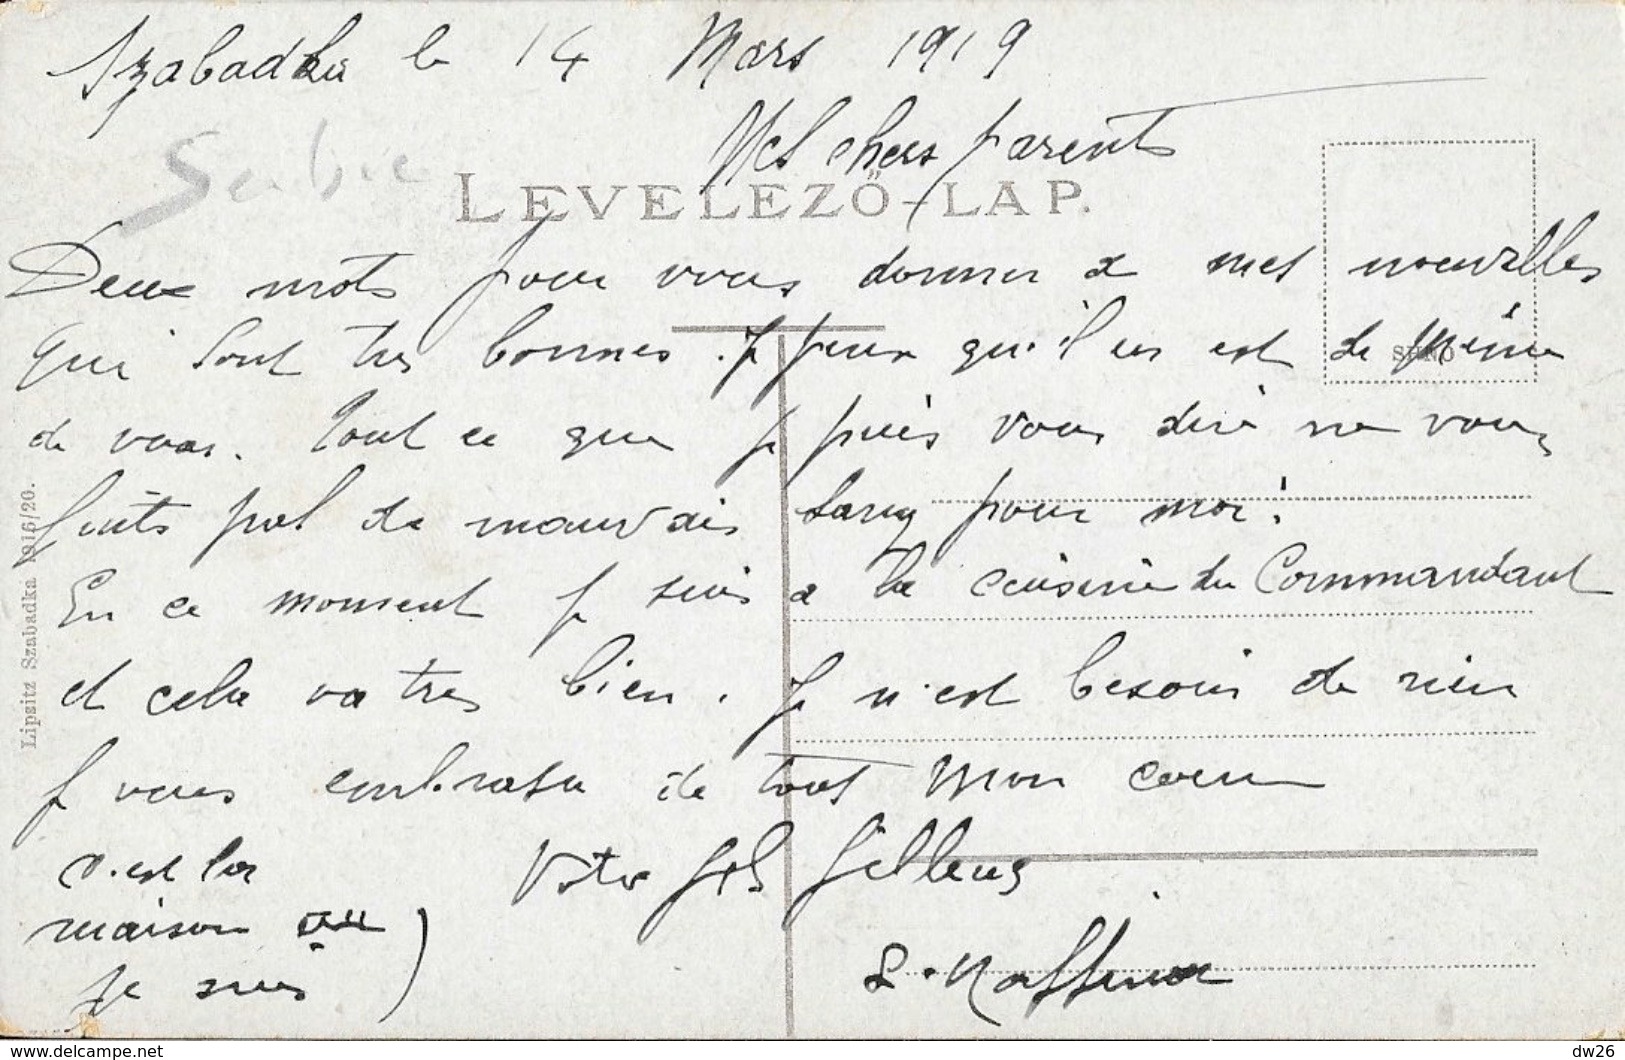 Szabadka le 14 Mars 1919
Serbie
Mes chers parents
LEVELEZŐ-LAP.
Deux mots pour vous donner de mes nouvelles
qui sont tres bonnes. Je peux qu'il en est de même
de vous. Tout ce que je puis vous dire ne vous
faits pas de mauvais sang pour moi.
En ce moment je suis a la cuisine du Commandant
et cela va tres bien. Je n'est besoin de rien
Je vous embrasse de tout mon coeur
Votre fils
c'est la
maison ou
je suis )
Lipsitz Szabadka 1916/20.
www.delcampe.net
dw26